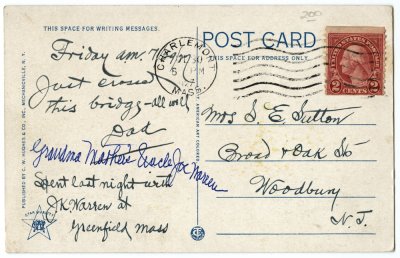 200
THIS SPACE FOR WRITING MESSAGES.
POST CARD
THIS SPACE FOR ADDRESS ONLY.
CHARLEMONT
MASS.
6 PM
UNITED STATES POSTAGE
2 CENTS 2
Friday am 7
Just crossed
this bridge - all well
Dad
Grandma Mather's Uncle Joe Warren
Spent last night with
J.K. Warren at
Greenfield Mass
Mrs S. E. Sutton
Broad & Oak St
Woodbury
N. J.
PUBLISHED BY C. W. HUGHES & CO., INC., MECHANICVILLE, N. Y.
AMERICAN ART COLORED